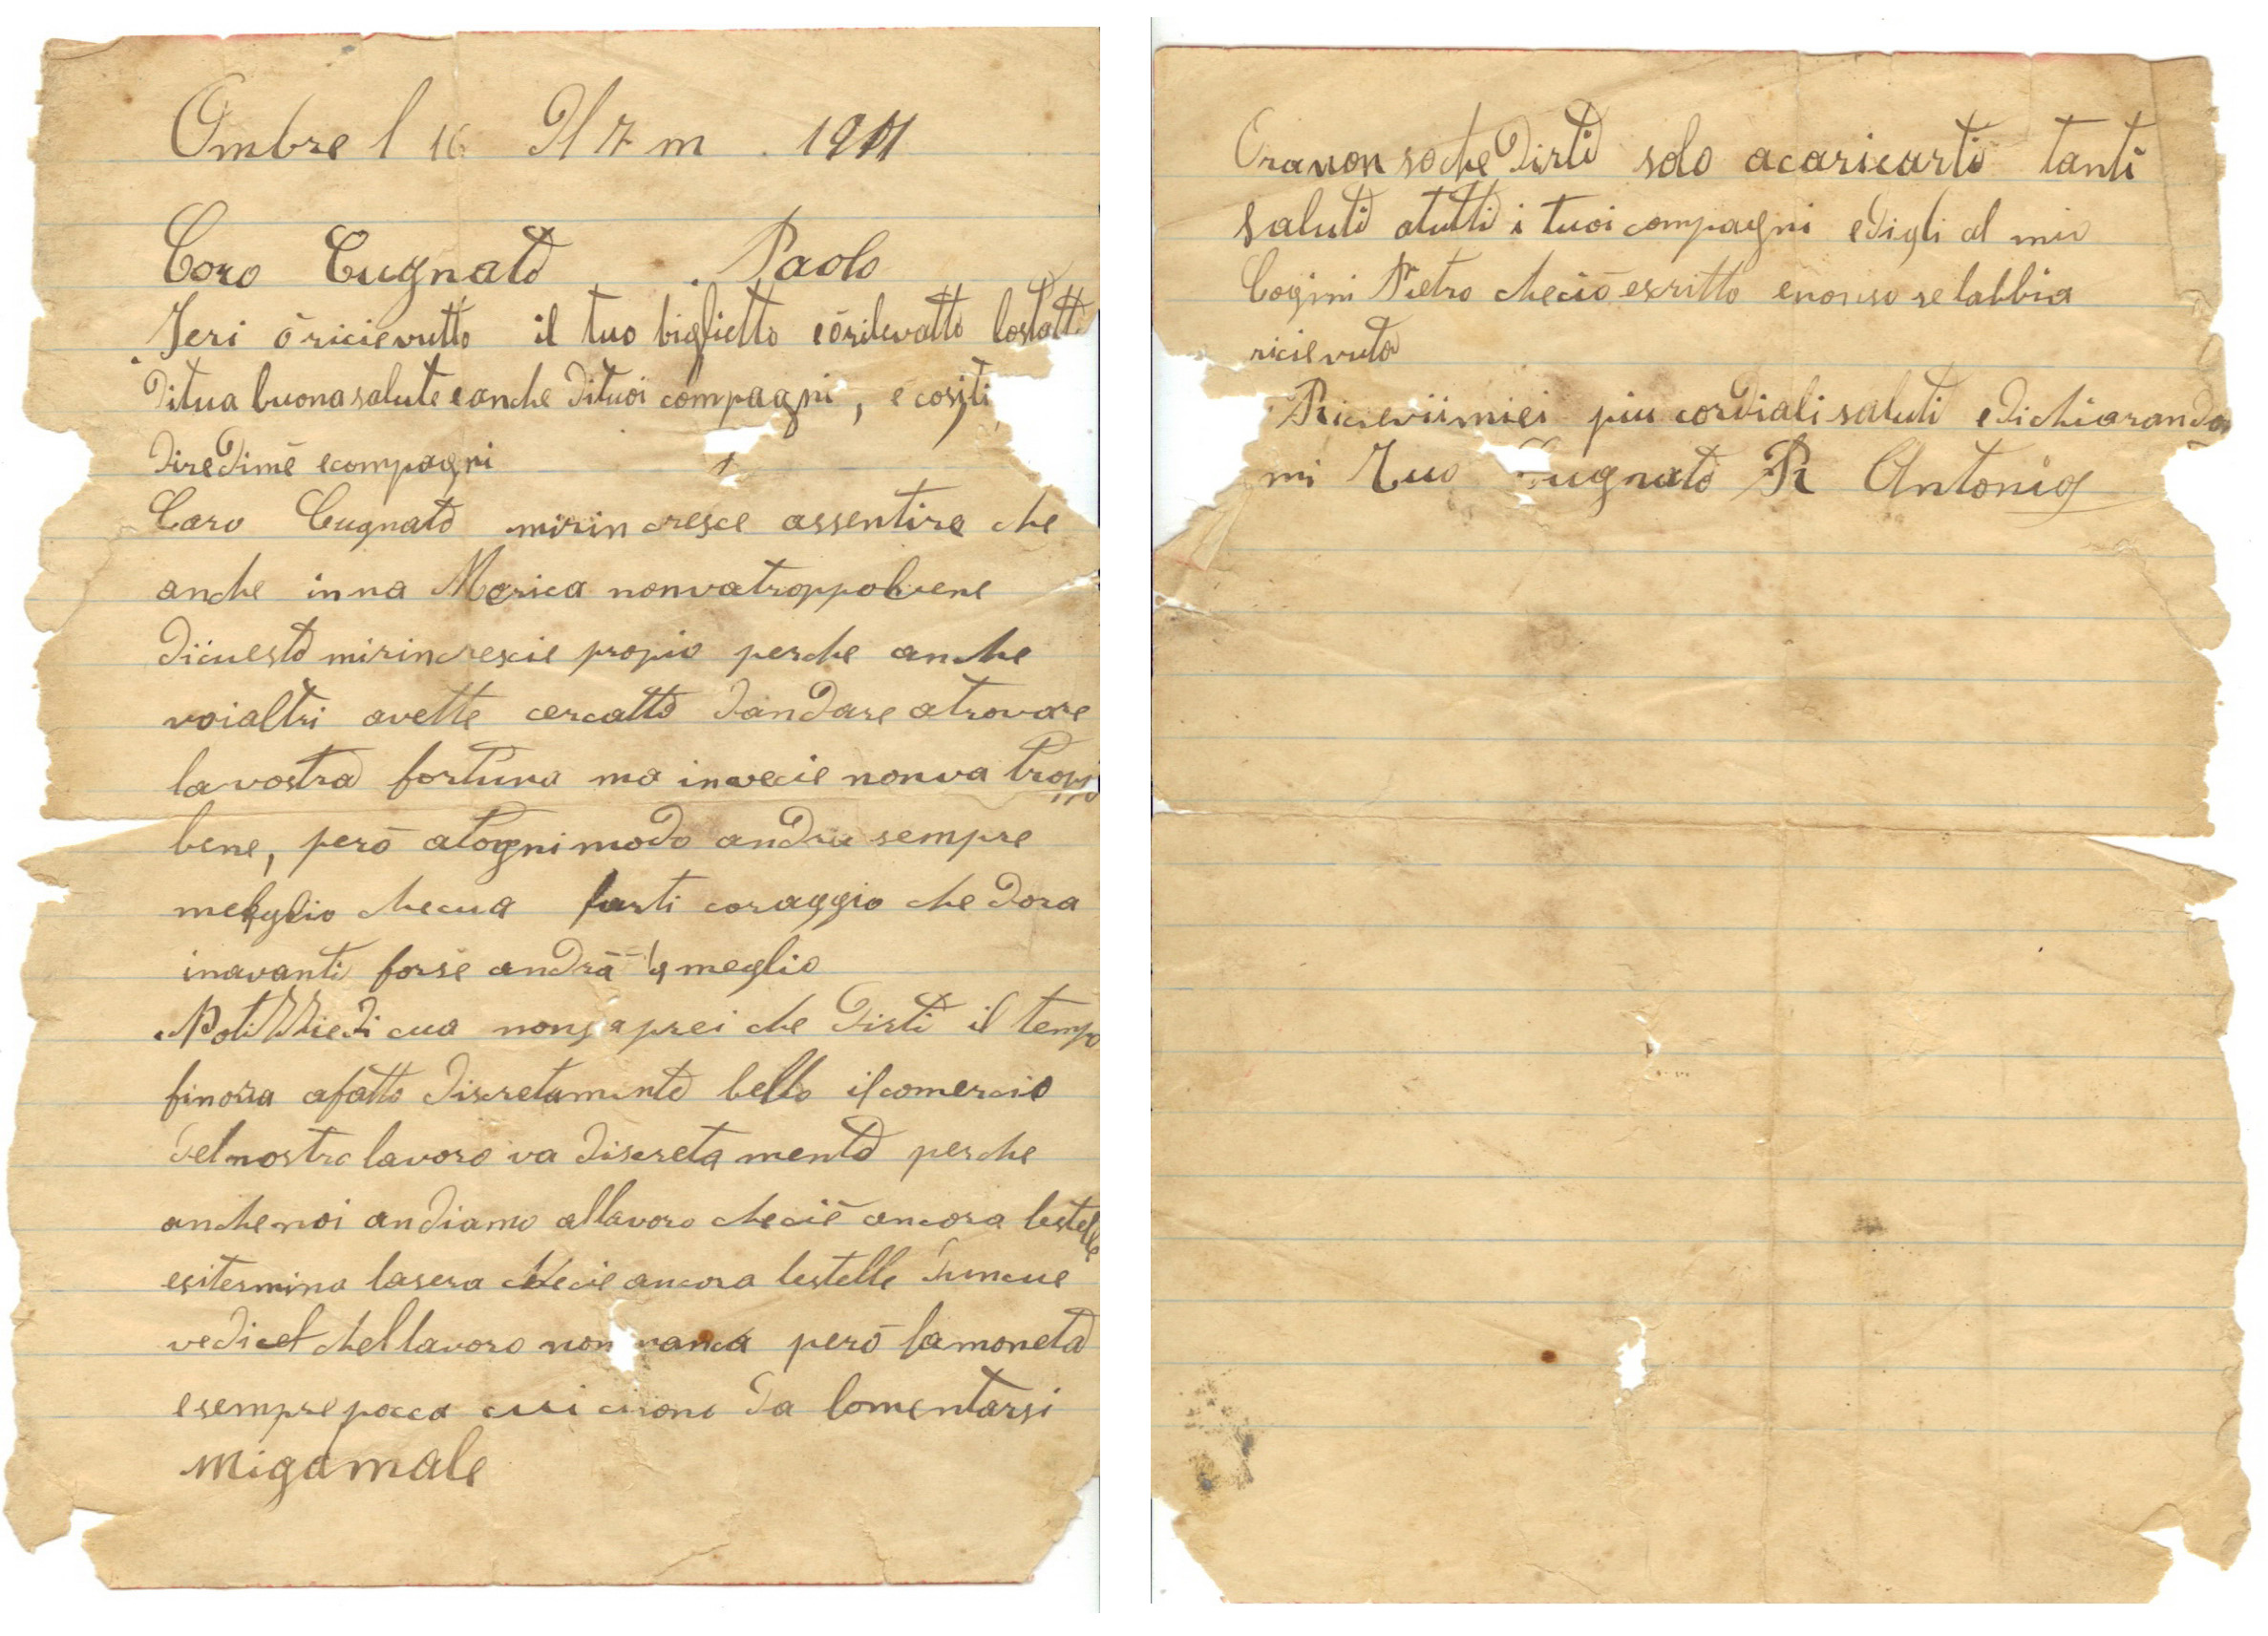 Ombre l 16 Il 7 m. 1911
Caro Cugnato . Paolo
Jeri ò ricievutto il tuo biglietto e òrilevatto lostatt
Ditua buonasalute e anche Dituoi compagni, e cosìti
DireDimè ecompagni
Caro Cugnato mirincresce assentire che
anche inna Merica nonvatroppobene
Dicuesto mirincrescie propio perche anche
voialtri avette cercatto Dandare atrovare
lavostra fortuna ma invecie nonva tropp
bene, però atogni modo andrà sempre
meglio checua farti coraggio che Dora
inavanti forse andrà meglio
NotizzieDi cua nonsaprei che Dirti il tempo
finorra afatto Discretamento bello ilcomercio
Delnostro lavoro va Discretamento perche
anchenoi andiamo allavoro checiè ancora lestelle
esitermina lasera checie ancora lestelle Duncue
vedi chellavoro non manca però lamoneta
esemprepocca Da lamentarsi
migamale
Oranon soche Dirti solo acaricarti tanti
saluti atutti i tuoi compagni eDigli al mio
Cogini Pietro checiò escritto enonso selabbia
ricievuta
Ricieviimiei piu cordiali saluti eDichiarando
mi Tuo Cugnato R Antonio